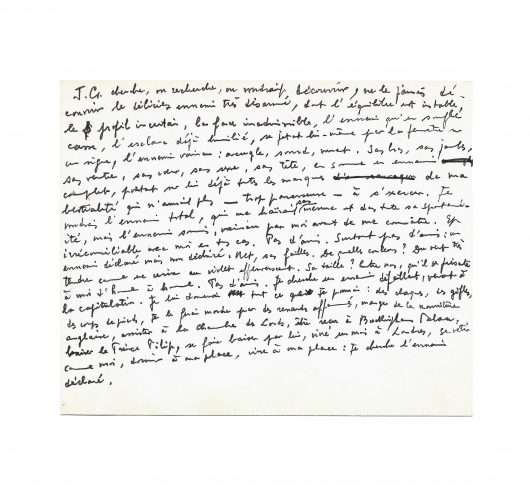 J.G. cherche, ou recherche, ou voudrait découvrir, ne le jamais dé-
couvrir le délicieux ennemi très désarmé, dont l'équilibre est instable,
le profil incertain, la face inadmissible, l'ennemi qu'un souffle
casse, l'esclave déjà humilié, se jetant lui-même par la fenêtre
un signe, l'ennemi vaincu : aveugle, sourd, muet. Sans bras, sans jambes,
sans ventre, sans cœur, sans sexe, sans tête, en somme un ennemi
complet, portant sur lui déjà toutes les marques de ma
bestialité qui n'aurait plus — trop paresseuse — à s'exercer. Je
voudrais l'ennemi total, qui me haïrait sans mesure et dans toute sa spontané-
ité, mais l'ennemi soumis, vaincu par moi avant de me connaître. Et
irréconciliable avec moi en tous cas. Pas d'amis. Surtout pas d'amis : un
ennemi déclaré mais non déchiré. Net, sans failles. De quelles couleurs ? Du vert très
tendre comme une cerise au violet effervescent. Sa taille ? Entre nous, qu'il se présente
à moi d'homme à homme. Pas d'amis. Je cherche un ennemi défaillant, venant à
la capitulation. Je lui donnerai tout ce que je pourrai : des claques, des gifles,
des coups de pied, je le ferai mordre par des renards affamés, manger de la nourriture
anglaise, assister à la Chambre des Lords, être reçu à Buckingham Palace,
baiser le Prince Philip, se faire baiser par lui, vivre un mois à Londres, se vêtir
comme moi, dormir à ma place, vivre à ma place : je cherche l'ennemi
déclaré.